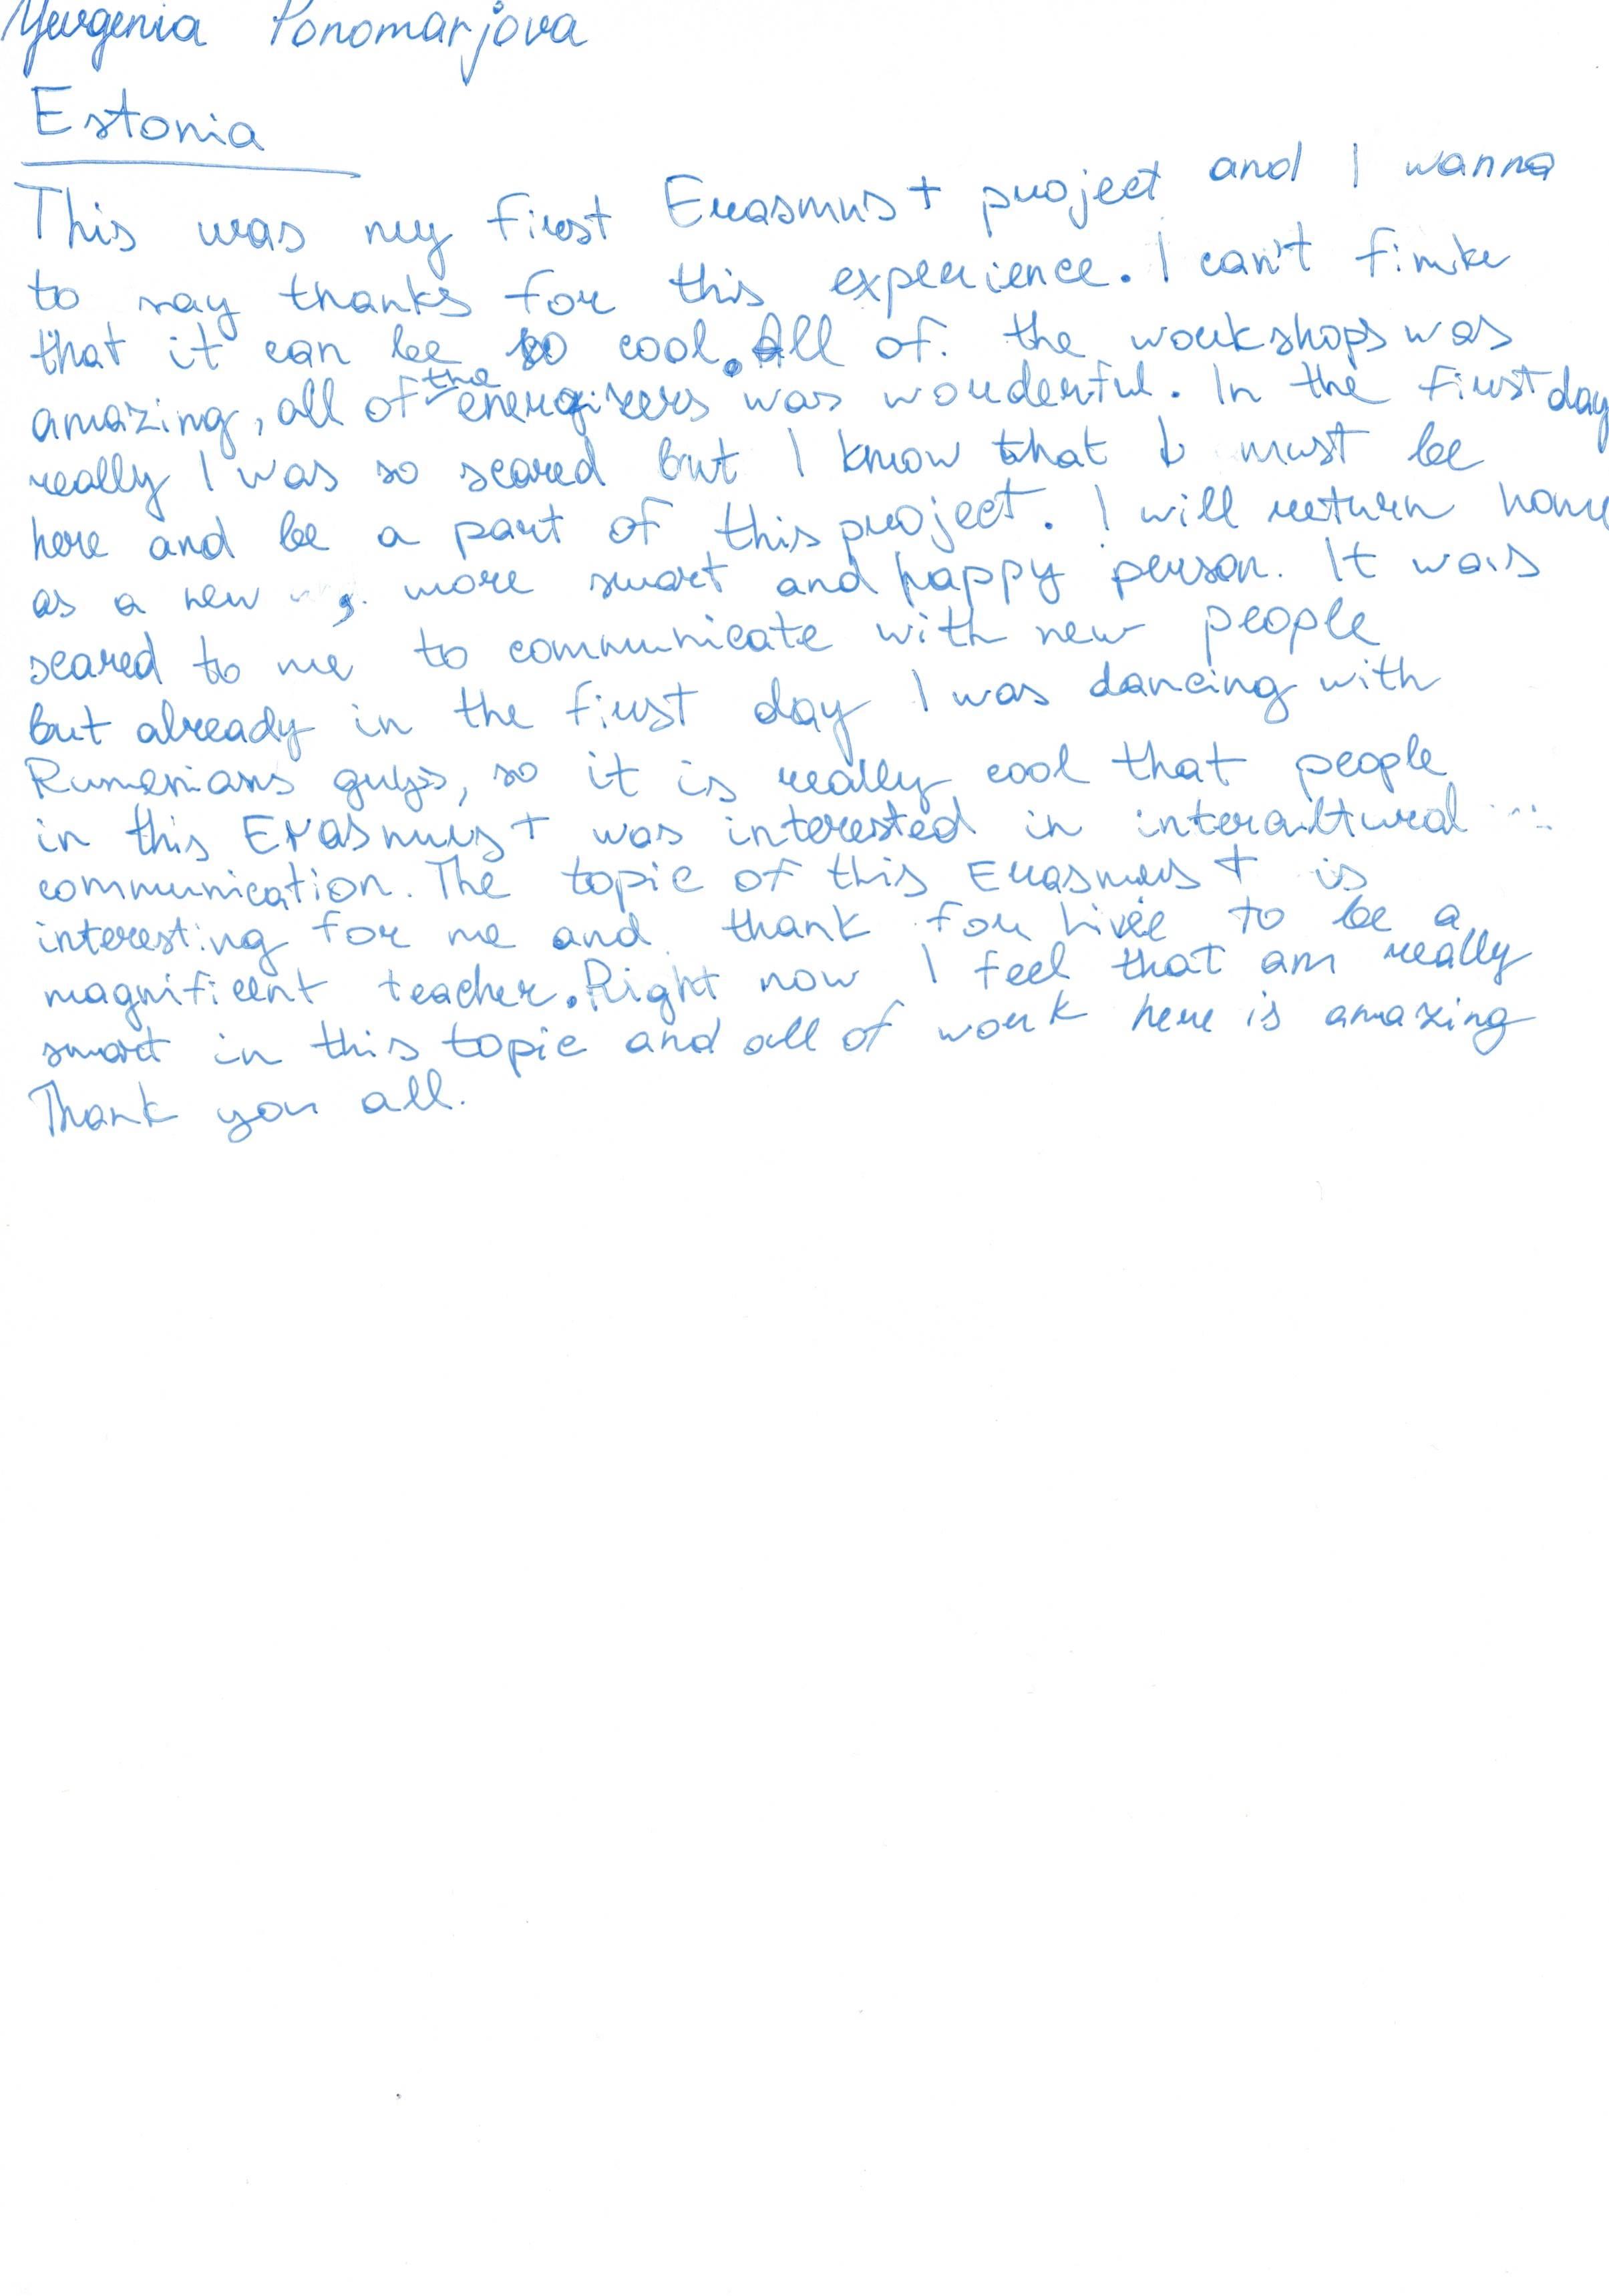 Yevgenia Ponomarjova
Estonia
This was my first Erasmus+ project and I wanna
to say thanks for this experience. I can't finike
that it can be so cool. All of the workshops was
amazing, all of the energizers was wonderful. In the first day
really I was so scared but I know that I must be
here and be a part of this project. I will return home
as a new, more smart and happy person. It was
scared to me to communicate with new people
but already in the first day I was dancing with
Rumenians guys, so it is really cool that people
in this Erasmus+ was interested in intercultural
communication. The topic of this Erasmus+ is
interesting for me and thank for to be a
magnificent teacher. Right now I feel that am really
smart in this topic and all of work here is amazing
Thank you all.